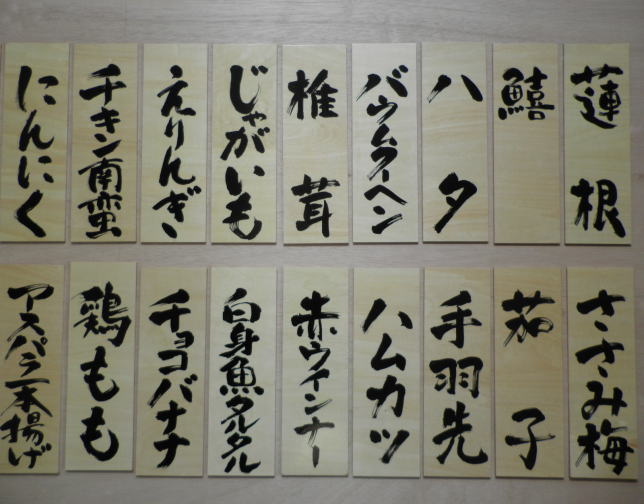 蓮根
鱚
ハタ
バウムクーヘン
椎茸
じゃがいも
えりんぎ
チキン南蛮
にんにく
ささみ梅
茄子
手羽先
ハムカツ
赤ウインナー
白身魚タルタル
チョコバナナ
鶏もも
アスパラ一本揚げ